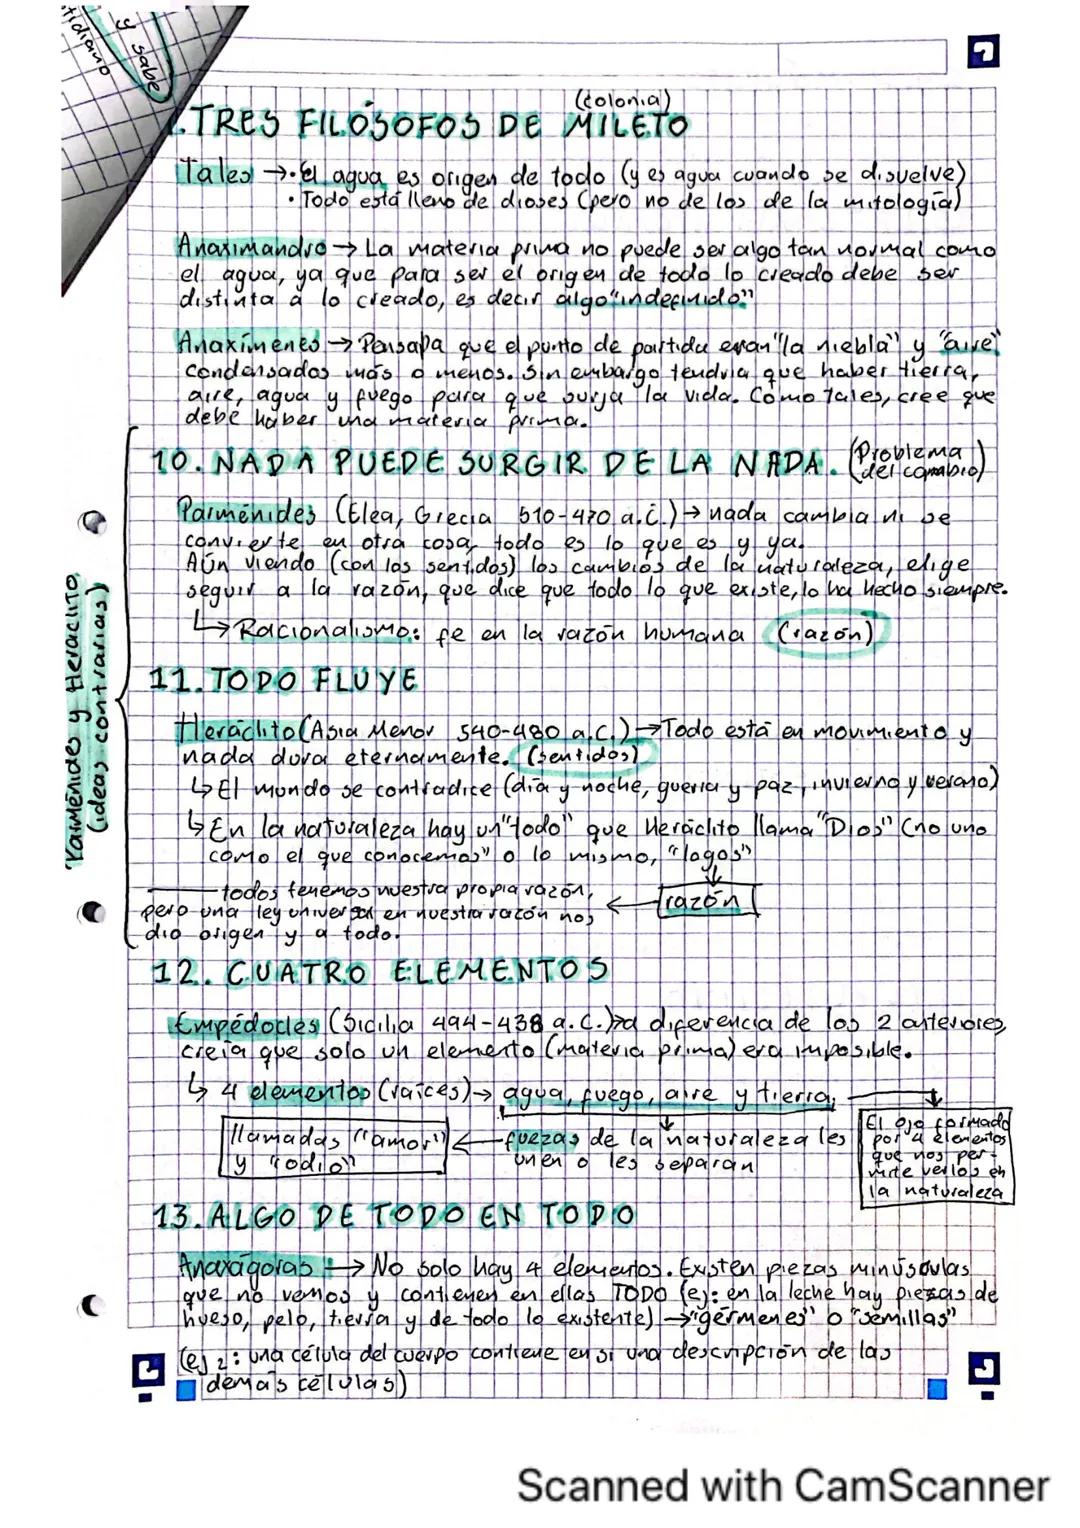 y sabe
tidiano
(colonia)
.TRES FILÓSOFOS DE MILETO
Tales →·El agua es origen de todo (y es agua cuando se disuelve)
· Todo está lleno de dioses (pero no de los de la mitología)
Anaximandro → La materia prima no puede ser algo tan normal como
el agua, ya que para ser el origen de todo lo creado debe ser
distinta a lo creado, es decir algo "indefinido"
Anaxímenes → Pensapa que el punto de partida eran "la niebla" y "aire"
condensados más o menos. Sin embargo tendría que haber tierra,
aire, agua y fuego para que surja la vida. Como Tales, cree que
debe haber una materia prima.
10. NADA PUEDE SURGIR DE LA NADA. (Problema
del cambio)
Parménides (Elea, Grecia 510-470 a.C.) → nada cambia ni se
convierte en otra cosa, todo es lo que es y ya.
Aún viendo (con los sentidos) los cambios de la naturaleza, elige
seguir a la razón, que dice que todo lo que existe, lo ha hecho siempre.
↳ Racionalismo: fe en la razón humana (razón)
Parménides y Heráclito
(ideas contrarias)
11. TODO FLUYE
Heráclito (Asia Menor 540-480 a.C.) → Todo está en movimiento y
nada dura eternamente. (sentidos)
↳ El mundo se contradice (día y noche, guerra y paz, invierno y verano)
↳ En la naturaleza hay un "todo" que Heráclito llama "Dios" (no uno
como el que conocemos" o lo mismo, "logos"
↓
todos tenemos nuestra propia razón, ← razón
pero una ley universal en nuestra razón nos
dio origen y a todo.
12. CUATRO ELEMENTOS
Empédocles (Sicilia 494-438 a.C.) → a diferencia de los 2 anteriores,
creía que solo un elemento (materia prima) era imposible.
↳ 4 elementos (raíces) → agua, fuego, aire y tierra.
llamadas "amor"
y "odio"
← fuezas de la naturaleza les
unen o les separan
El ojo formado
por 4 elementos
que nos per-
mite verlos en
la naturaleza
13. ALGO DE TODO EN TODO
Anaxágoras → No solo hay 4 elementos. Existen piezas minúsculas
que no vemos y contienen en ellas TODO (ej: en la leche hay piezas de
hueso, pelo, tierra y de todo lo existente) → "gérmenes" o "semillas"
(ej 2: una célula del cuerpo contiene en sí una descripción de las
demás células)
Scanned with CamScanner